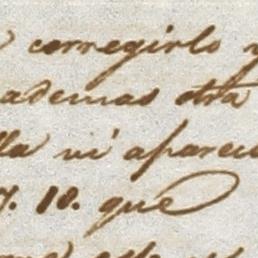 corregirlo y
ademas otra
lla vi aparec
7. 18. que